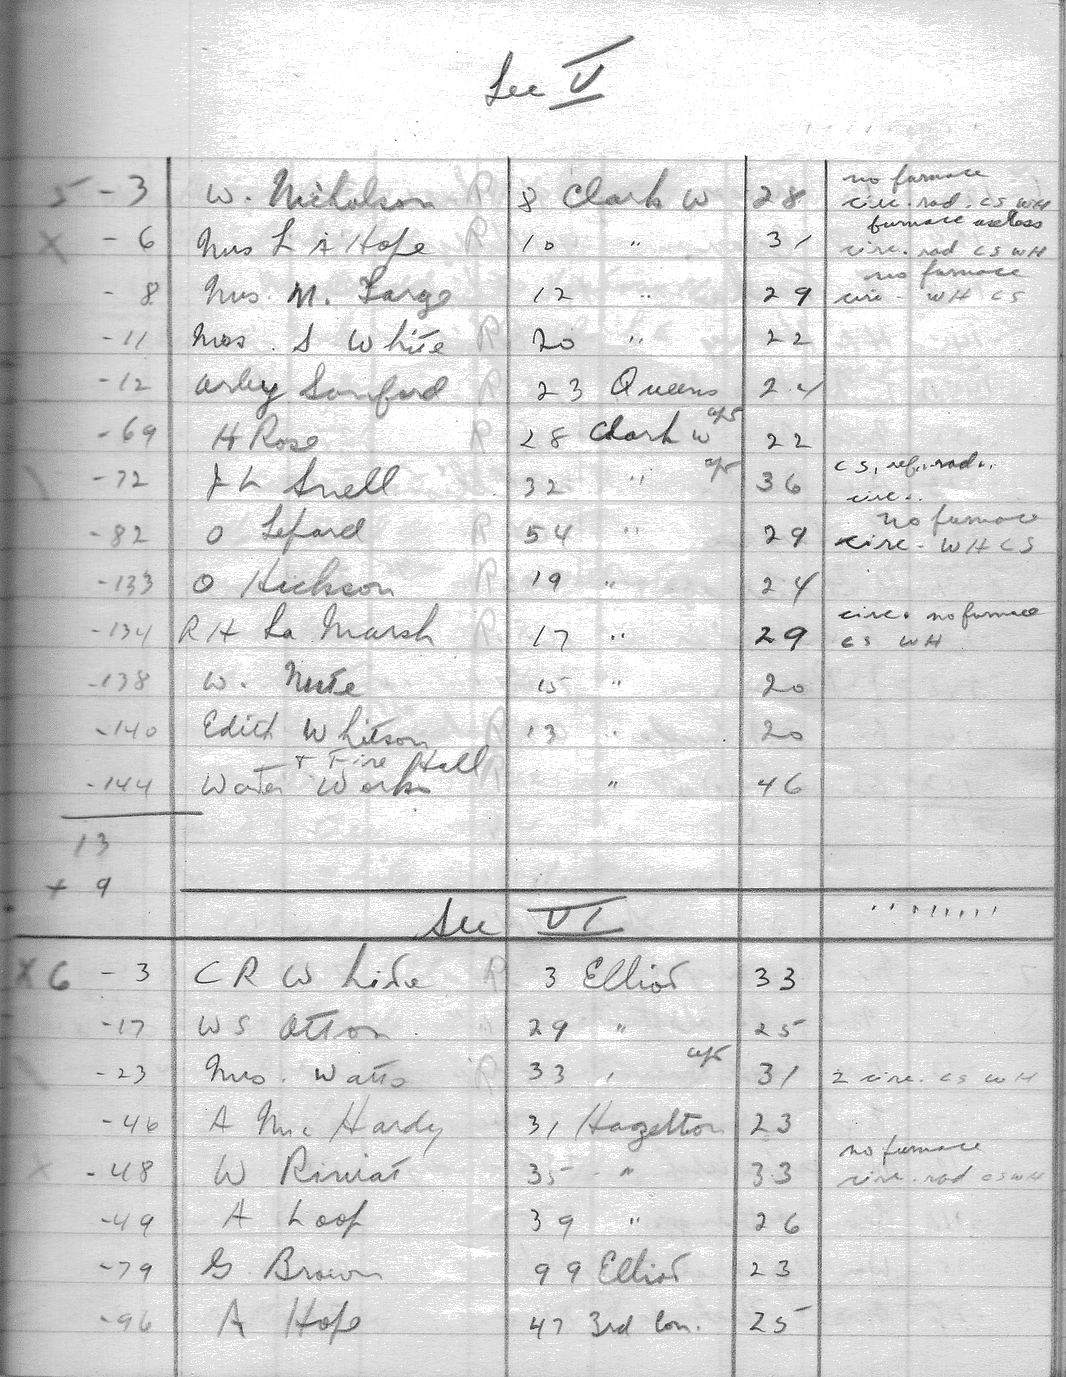 Sec V
5 - 3 W. Nicholson R 8 Clark W 28 no furnace circ. rad. CS WH
X - 6 Mrs L A Hope R 10 " 31 furnace useless circ. rad CS WH
- 8 Mrs. M. Large 12 " 29 no furnace circ - WH CS
- 11 Mrs. S White R 20 " 22
- 12 Arley Sanford R 23 Queens 24
- 69 H Rose R 28 Clark W 22
- 72 J L Snell 32 " 36 CS, ref. rad.. circ..
- 82 O Lepard R 54 " 29 no furnace circ - WH CS
- 133 O Hickson R 19 " 24
- 134 R H La Marsh R 17 " 29 circ. no furnace CS WH
- 138 W. Nute 15 " 20
- 140 Edith Whitson R 13 " 20
+ Fire Hall
- 144 Water Works " 46
13
+ 9
Sec VI
X 6 - 3 C R White R 3 Elliot 33
- 17 W S Otton 29 " 25
- 23 Mrs. Watts R 33 " 31 2 circ. CS WH
- 46 A McHardy 31 Hazelton 23
- 48 W 35 " 33 no furnace circ. rad CS WH
- 49 A Loop 39 " 26
- 79 G Brown 99 Elliot 23
- 96 A Hope 47 3rd Con. 25